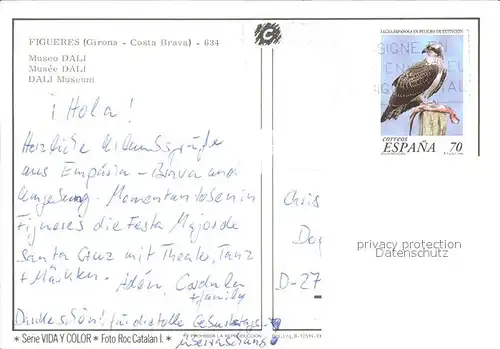 FIGUERES (Girona - Costa Brava) - 634
Museo DALÍ
Musée DALÍ
DALÍ Museum
¡Hola!
Herzliche Urlaubsgrüße
aus Empúria-Brava und
Umgebung. Momentan tosen in
Figueres die Festa Major de
Santa Cruz mit Theater, Tanz
+ Märkten. Adéu,
+ family
Dankeschön! für die tolle Geburtstags-
überraschung!
* Serie VIDA Y COLOR * Foto Roc Catalan I. *
PROHIBIDA LA REPRODUCCION
FAUNA ESPAÑOLA EN PELIGRO DE EXTINCION
SIGNE EN
CORREOS
ESPAÑA 70
Chris
D-27
privacy protection
Datenschutz